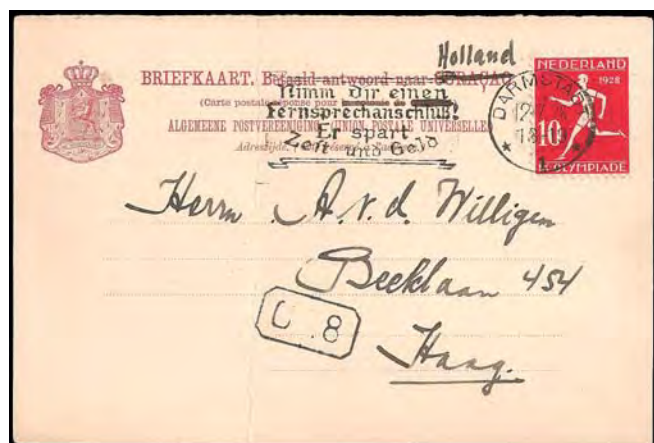 Holland
BRIEFKAART. Betaald antwoord naar CURAÇAO
(Carte postale réponse pour
ALGEMEENE POSTVEREENIGING (UNION POSTALE UNIVERSELLE)
Adreszijde.
Nimm dir einen
Fernsprechanschluß!
Er spart
Zeit und Geld
DARMSTADT
NEDERLAND
1928
10
OLYMPIADE
Herrn A. v. d. Willigen
Beeklaan 454
Haag.
8